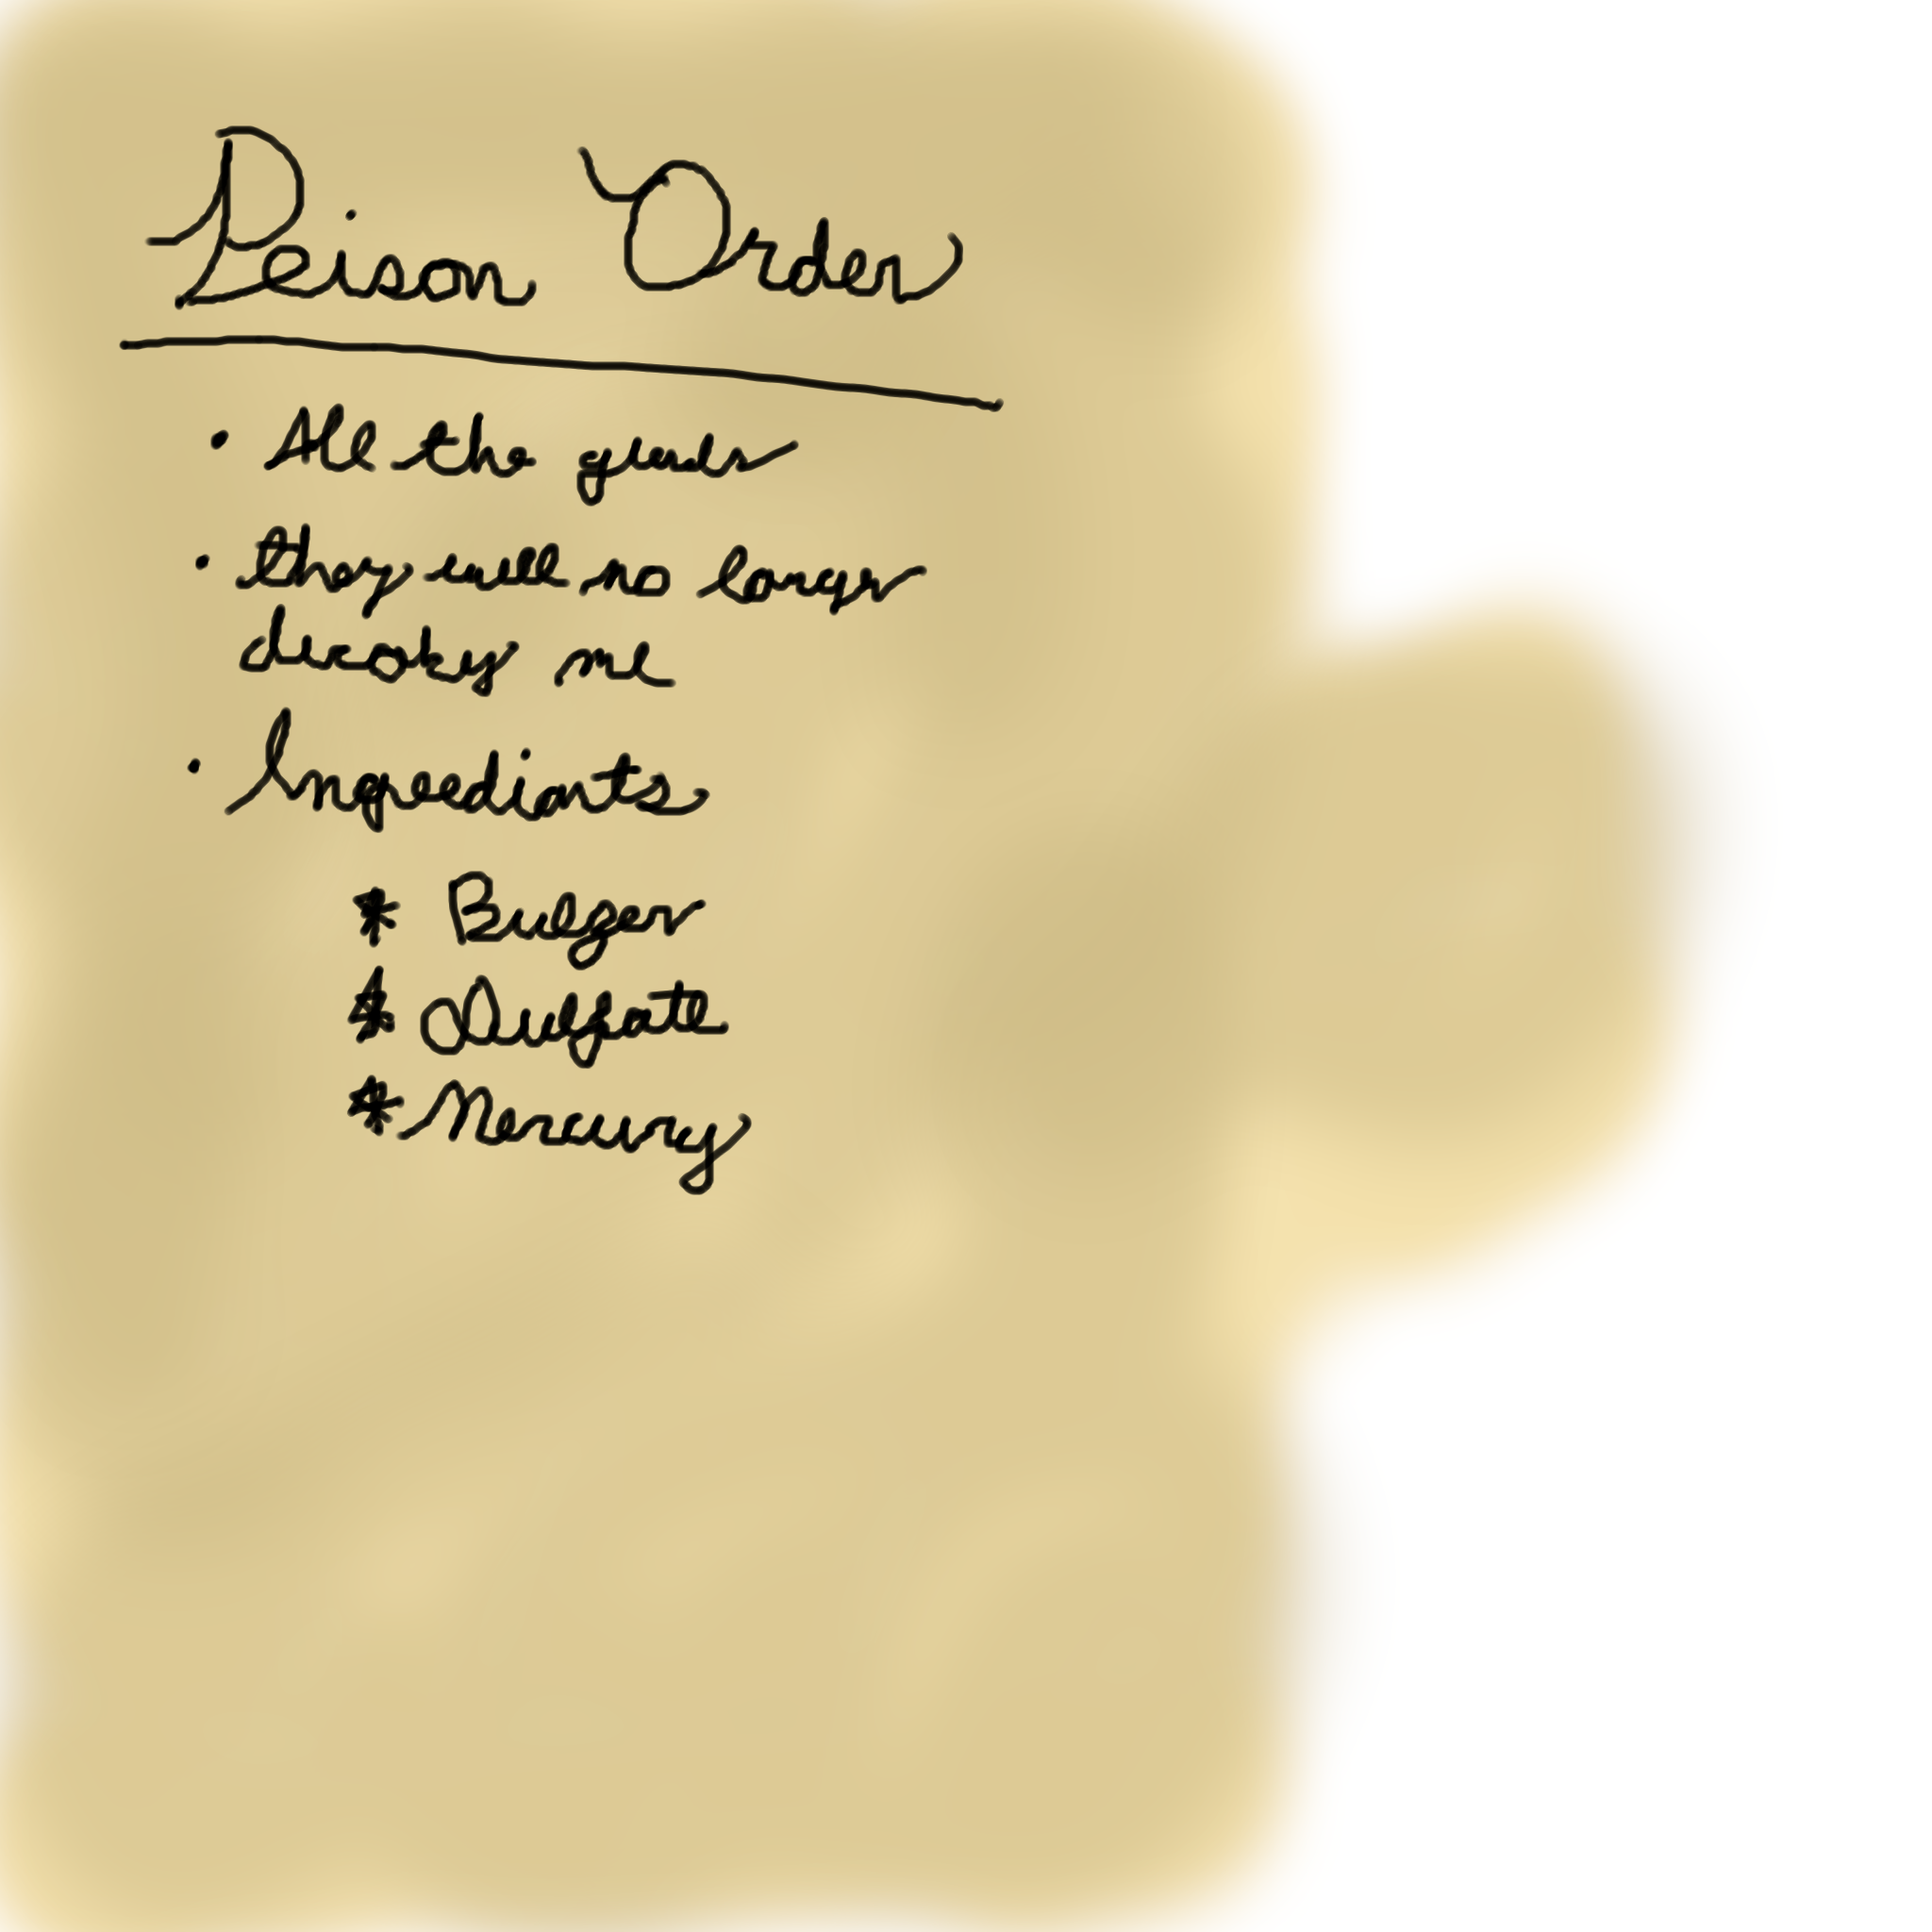 Peison Order
• All the guards
• they will no longer
decoky me
• Ingreediants
* Bulger
* Sulfate
* Mercury